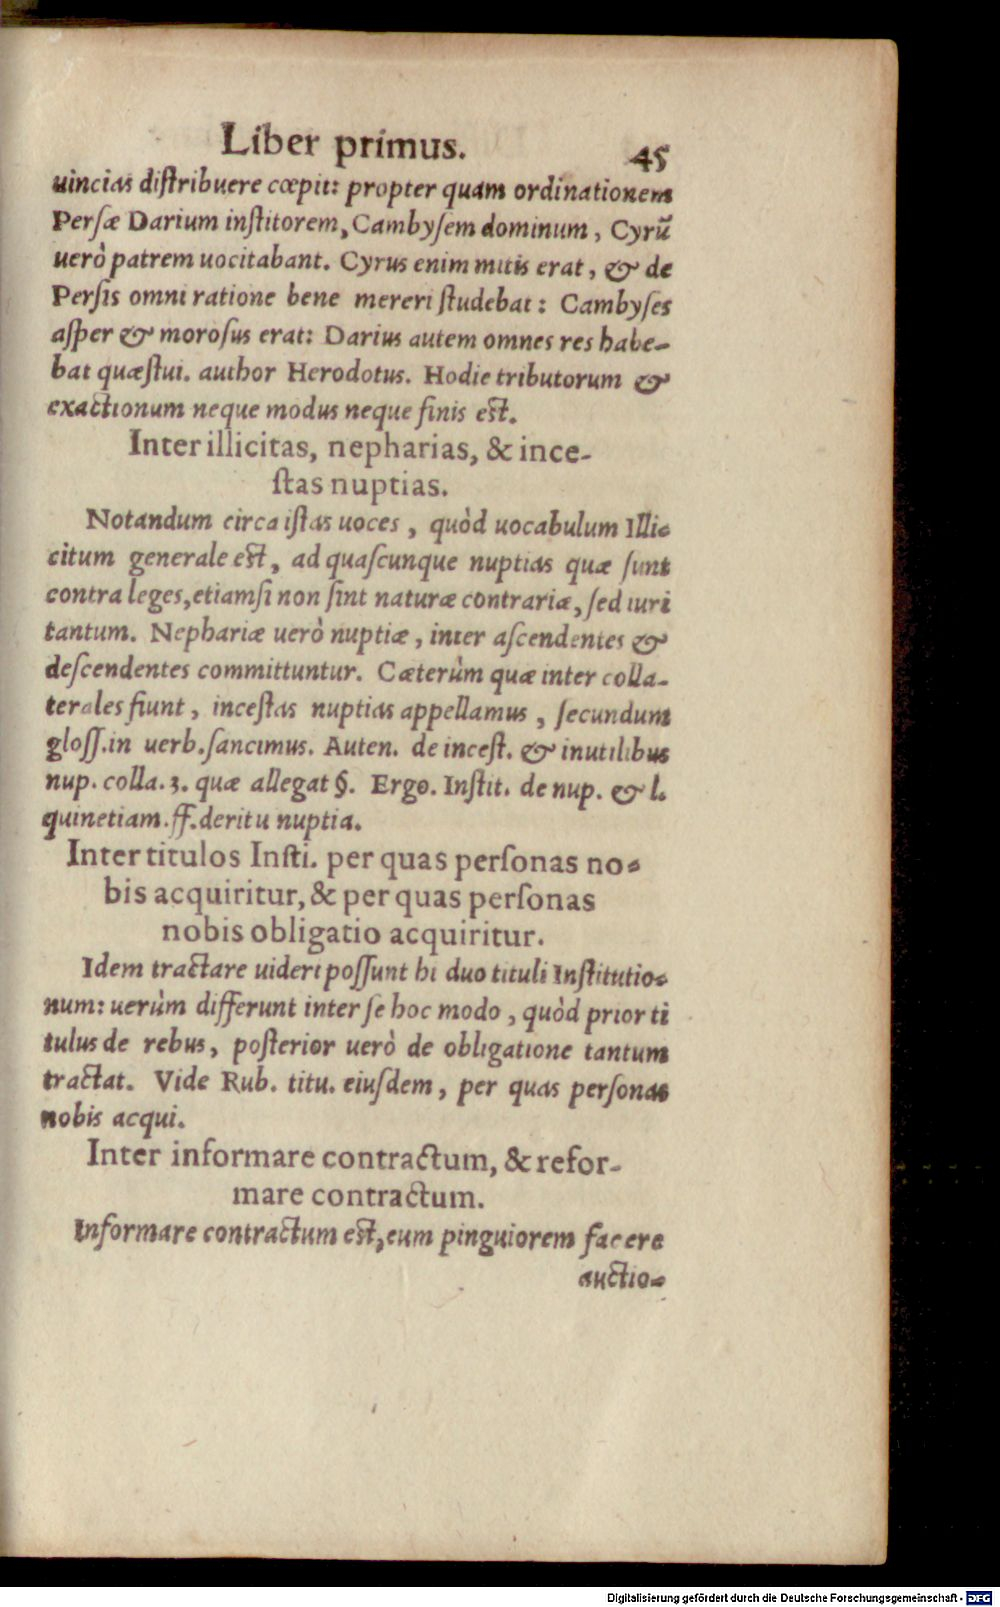 Liber primus. 45
uincias diſtribuere cœpit: propter quam ordinationem
Perſæ Darium inſtitorem, Cambyſem dominum, Cyrū
uerò patrem uocitabant. Cyrus enim mitis erat, & de
Perſis omni ratione bene mereri ſtudebat: Cambyſes
aſper & moroſus erat: Darius autem omnes res habe-
bat quæſtui. author Herodotus. Hodie tributorum &
exactionum neque modus neque finis eſt.
Inter illicitas, nepharias, & ince-
ſtas nuptias.
Notandum circa iſtas uoces, quòd uocabulum Illi-
citum generale eſt, ad quaſcunque nuptias quæ ſunt
contra leges, etiamſi non ſint naturæ contrariæ, ſed iuri
tantum. Nephariæ uerò nuptiæ, inter aſcendentes &
deſcendentes committuntur. Cæterùm quæ inter colla-
terales fiunt, inceſtas nuptias appellamus, ſecundum
gloſſ. in uerb. ſancimus. Auten. de inceſt. & inutilibus
nup. colla. 3. quæ allegat §. Ergo. Inſtit. de nup. & l.
quinetiam. ff. de ritu nuptia.
Inter titulos Inſti. per quas perſonas no-
bis acquiritur, & per quas perſonas
nobis obligatio acquiritur.
Idem tractare uideri poſſunt hi duo tituli Inſtitutio-
num: uerùm differunt inter ſe hoc modo, quòd prior ti
tulus de rebus, poſterior uerò de obligatione tantum
tractat. Vide Rub. titu. eiuſdem, per quas perſonas
nobis acqui.
Inter informare contractum, & refor-
mare contractum.
Informare contractum eſt, eum pinguiorem facere
auctio-
Digitalisierung gefördert durch die Deutsche Forschungsgemeinschaft - DFG